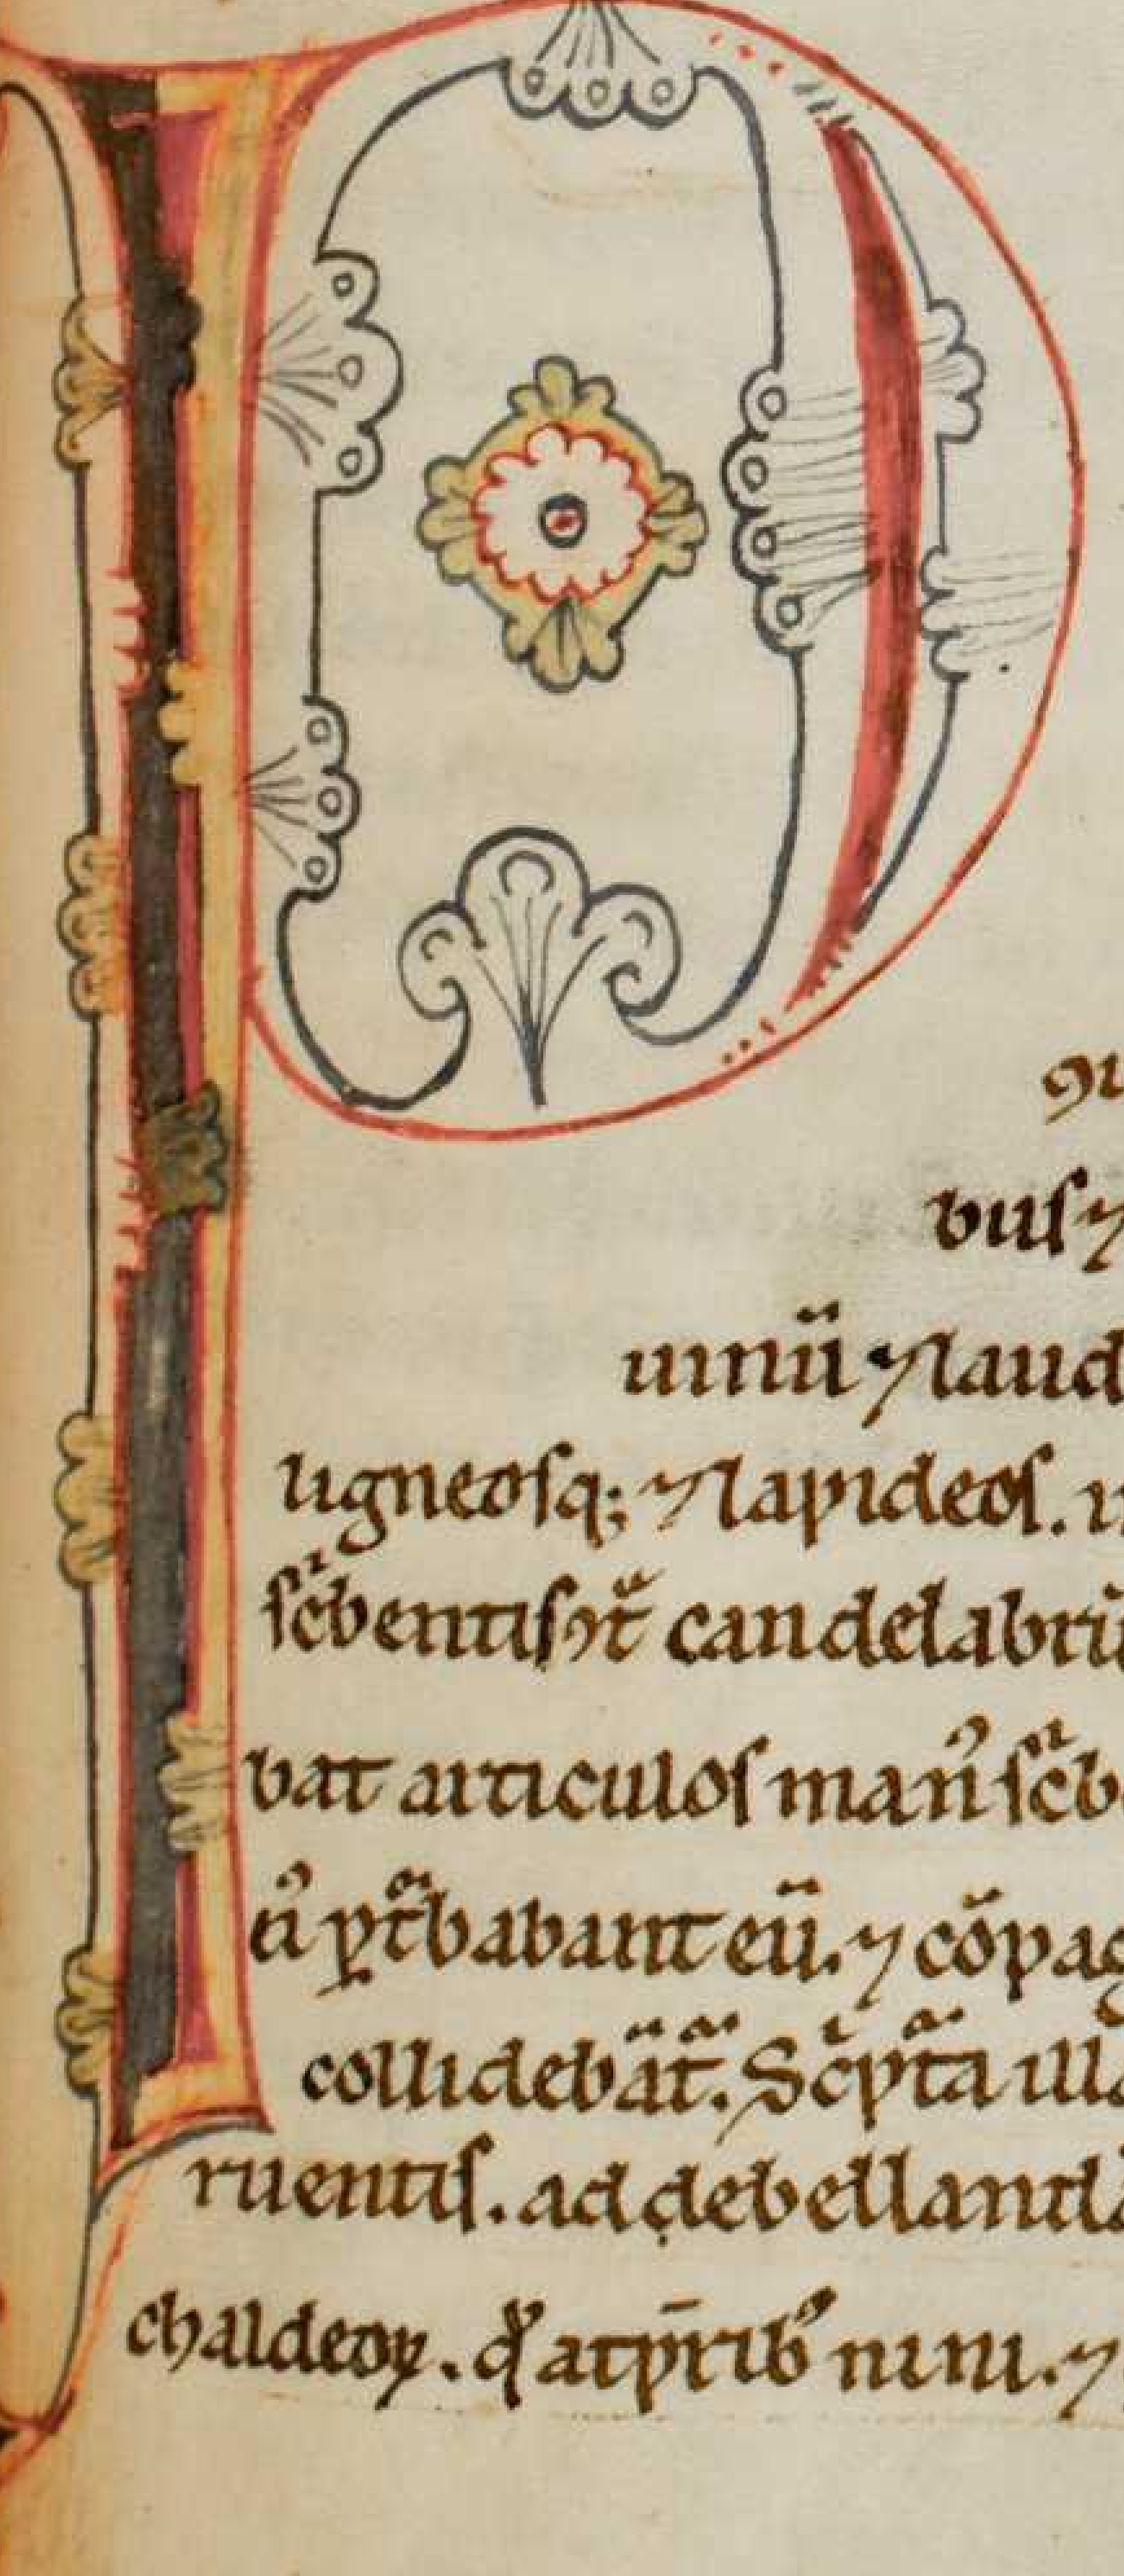 P
qu
bus ⁊
uinũ ⁊ laud
ligneosq; ⁊ lapideos. i
sc̾bentis ꝛ̃ candelabrũ
bat articulos man᷒ sc̾b
ei᷒ ꝑt̾babant eũ. ⁊ cõpag
collidebãt̃. Sc̾pta illa
ruentis. ad debelland
chaldeoꝝ. atp̄rib᷒ nini. ⁊